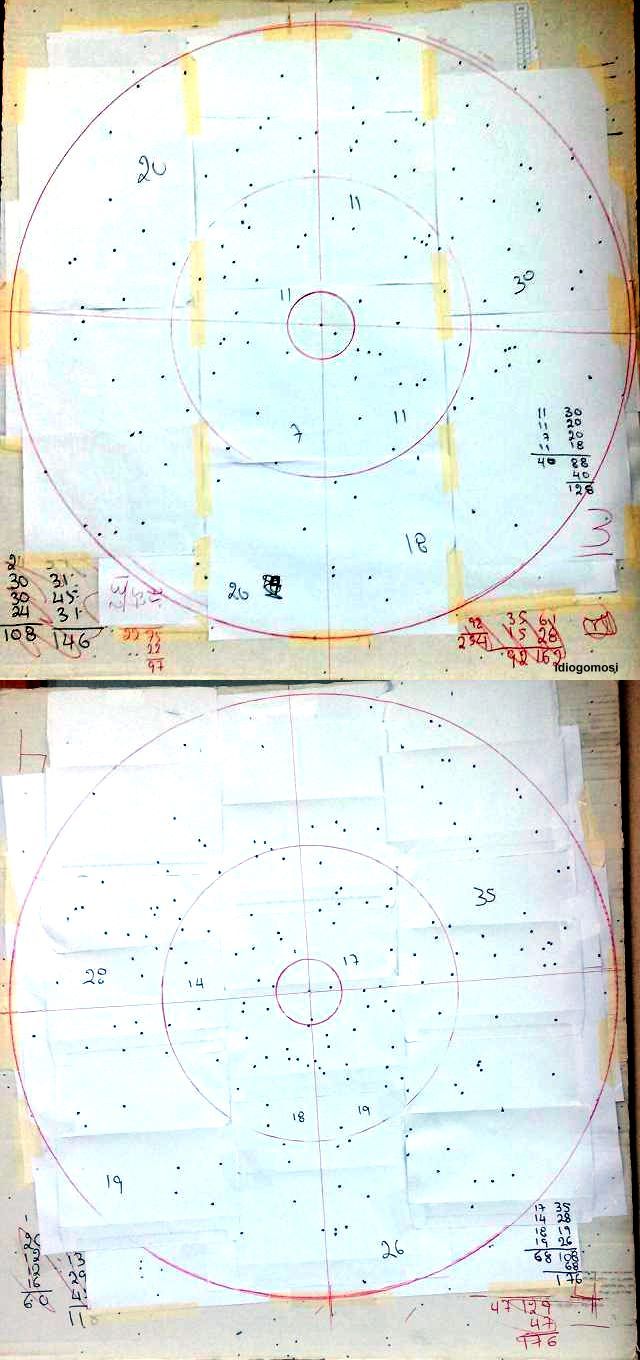 20
11
30
11
11
7
11 30
11 20
7 20
11 18
40 88
40
128
18
3
20
30 31
30 45
24 31
108 146
22 75
22
97
92 35 61
254 15 28
92 162
Idiogomosi
H
35
17
28
14
18 19
19
17 35
14 28
18 19
19 26
68 108
68
176
26
60
47 129
47
176